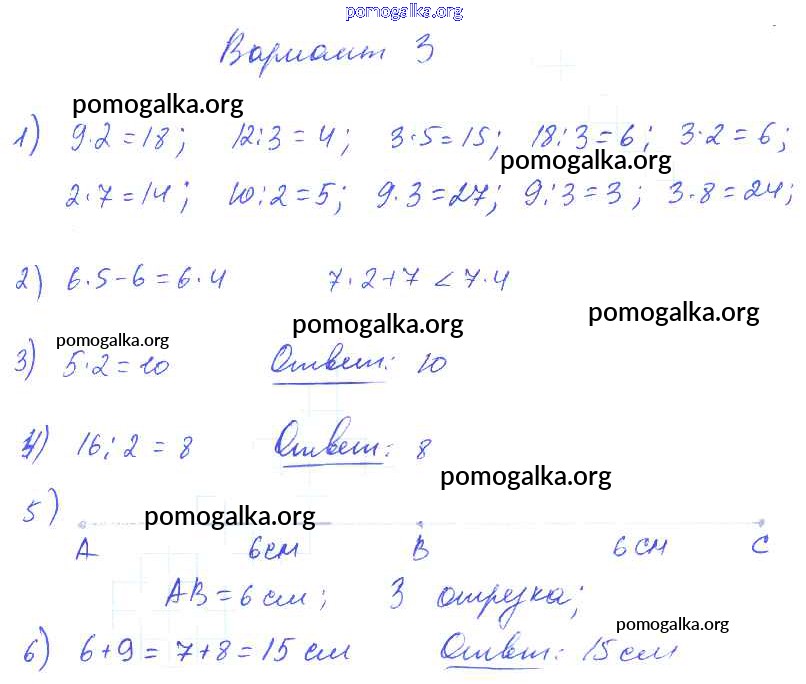 pomogalka.org
Вариант 3
pomogalka.org
1) 9·2=18; 12:3=4; 3·5=15; 18:3=6; 3·2=6;
pomogalka.org
2·7=14; 10:2=5; 9·3=27; 9:3=3; 3·8=24;
2) 6·5-6=6·4 7·2+7<7·4
pomogalka.org
pomogalka.org
pomogalka.org
3) 5·2=10 Ответ: 10
4) 16:2=8 Ответ: 8
pomogalka.org
5)
pomogalka.org
А 6см В 6см С
АВ=6см; 3 отрезка;
pomogalka.org
6) 6+9=7+8=15см Ответ: 15см